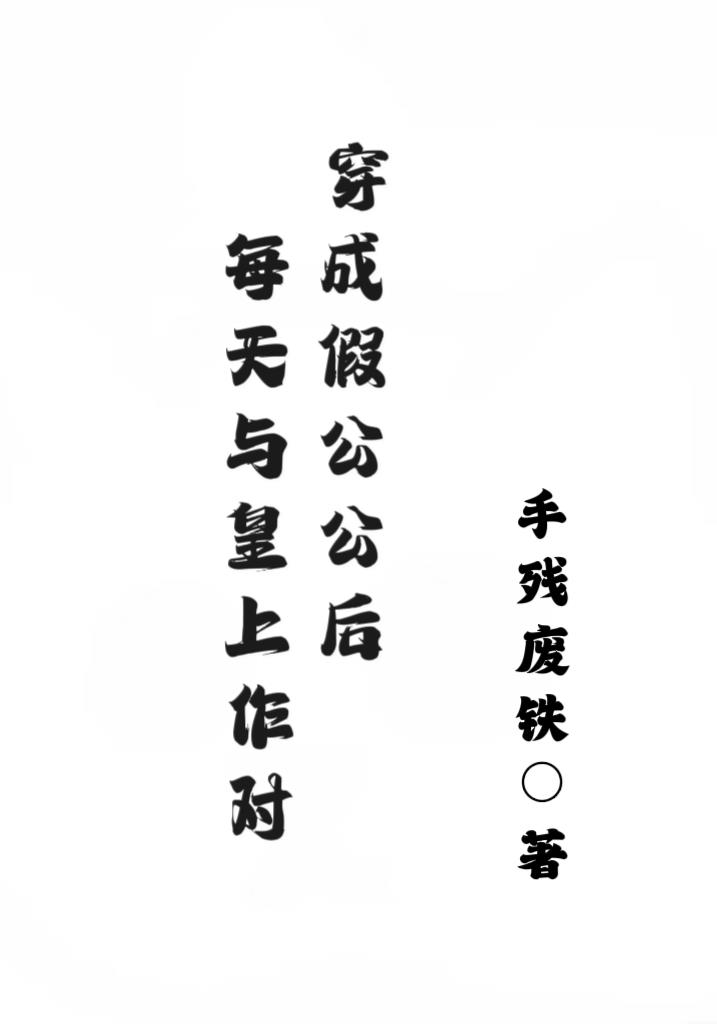 穿成假公公后
每天与皇上作对
手残废铁○著